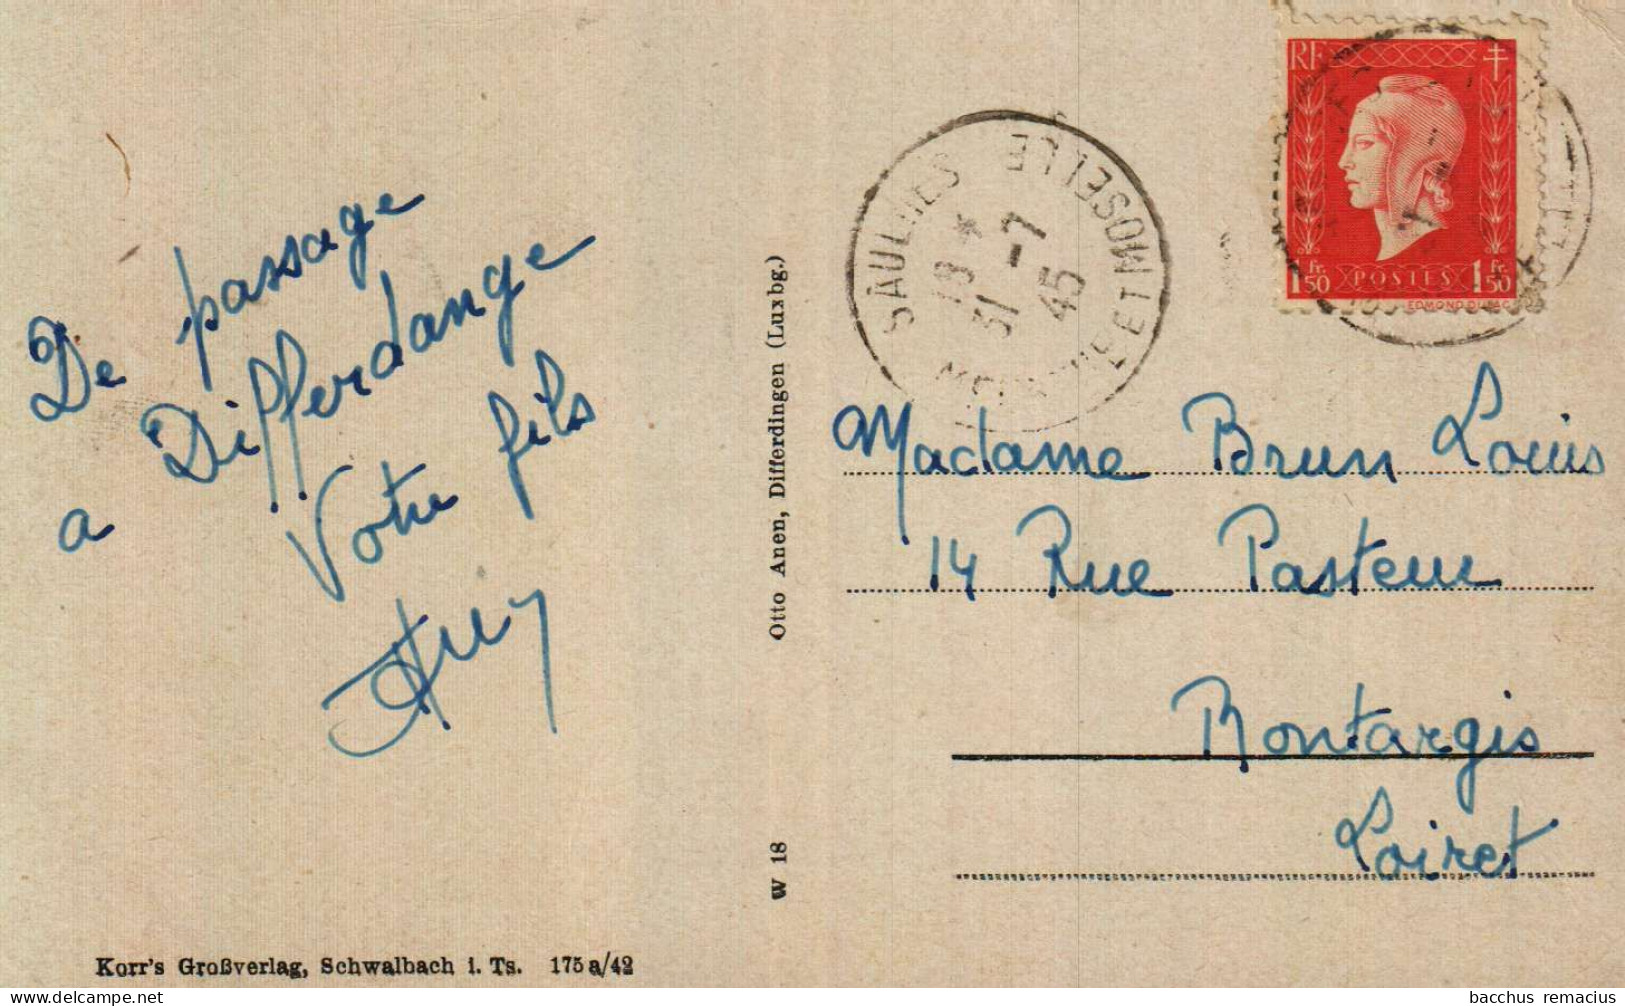 De passage
a Differdange
Votre fils
Otto Anen, Differdingen (Luxbg.)
W 18
Korr's Großverlag, Schwalbach i. Ts. 175 a/42
SAULNES
MEURTHE ET MOSELLE
19 *
31 -7
45
RF
1 fr. 50 POSTES 1 fr. 50
EDMOND DULAC
Madame Brun Louis
14 Rue Pasteur
Montargis
Loiret
bacchus remacius